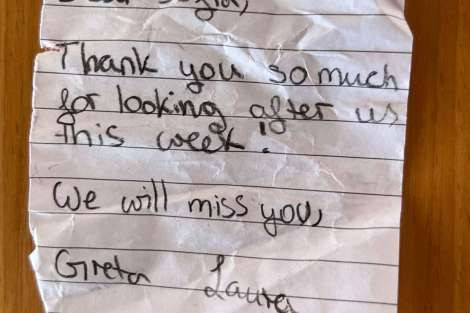 Dear
Thank you so much
for looking after us
this week!
We will miss you,
Greta Laura